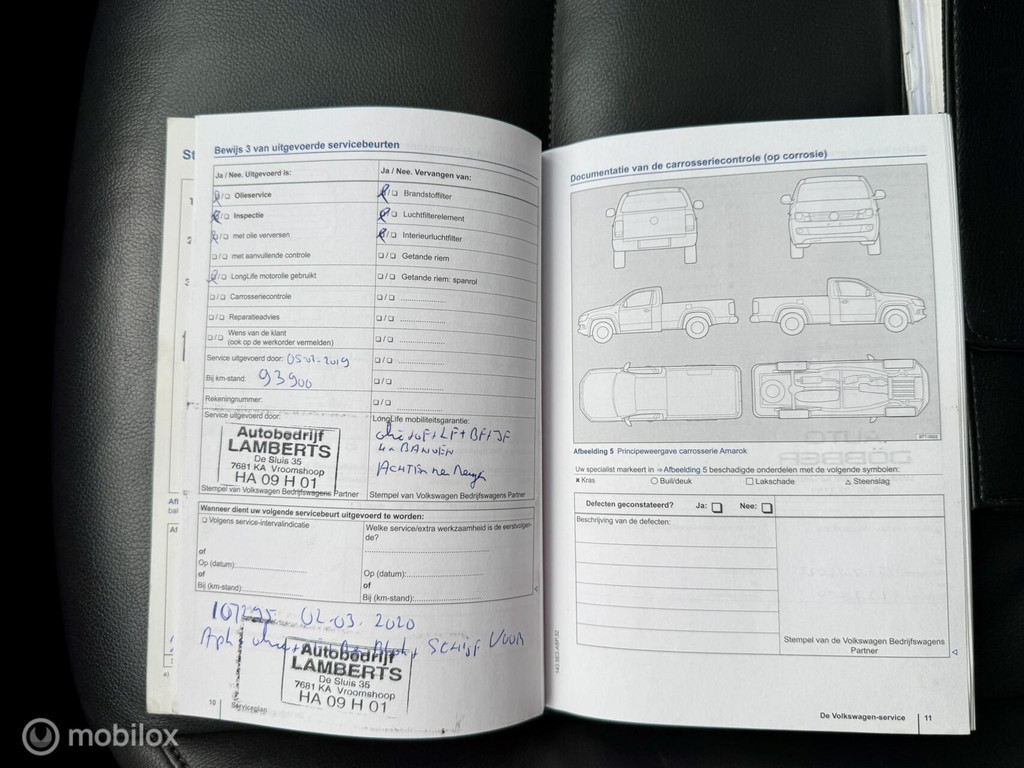 St
Bewijs 3 van uitgevoerde servicebeurten
Ja / Nee. Uitgevoerd is:
Ja / Nee. Vervangen van:
/❏ Olieservice
/❏ Brandstoffilter
/❏ Inspectie
/❏ Luchtfilterelement
/❏ met olie verversen
/❏ Interieurluchtfilter
❏/❏ met aanvullende controle
❏/❏ Getande riem
/❏ LongLife motorolie gebruikt
❏/❏ Getande riem: spanrol
❏/❏ Carrosseriecontrole
❏/❏ ....................
❏/❏ Reparatieadvies
❏/❏ ....................
❏/❏ Wens van de klant
(ook op de werkorder vermelden)
❏/❏ ....................
Service uitgevoerd door: 05-02-2019
❏/❏ ....................
Bij km-stand: 93900
❏/❏ ....................
Rekeningnummer:
❏/❏ ....................
Service uitgevoerd door:
Autobedrijf
LAMBERTS
De Sluis 35
7681 KA Vroomshoop
HA 09 H 01
Stempel van Volkswagen Bedrijfswagens Partner
LongLife mobiliteitsgarantie:
olie+OF+LF+BF+IF
4x BANDEN
ACHTER
Stempel van Volkswagen Bedrijfswagens Partner
Wanneer dient uw volgende servicebeurt uitgevoerd te worden:
❏ Volgens service-intervalindicatie
of
Op (datum):....................
of
Bij (km-stand):....................
Welke service/extra werkzaamheid is de eerstvolgen-
de?
....................
Op (datum):....................
of
Bij (km-stand):....................
107295 02-03-2020
Apk + olie + SCHIJF VOOR
Autobedrijf
LAMBERTS
De Sluis 35
7681 KA Vroomshoop
HA 09 H 01
10 Serviceplan
Documentatie van de carrosseriecontrole (op corrosie)
Afbeelding 5 Principeweergave carrosserie Amarok
Uw specialist markeert in ⇒ Afbeelding 5 beschadigde onderdelen met de volgende symbolen:
x Kras ○ Buil/deuk □ Lakschade △ Steenslag
Defecten geconstateerd? Ja: ❏ Nee: ❏
Beschrijving van de defecten:
Stempel van de Volkswagen Bedrijfswagens
Partner
De Volkswagen-service 11
mobilox